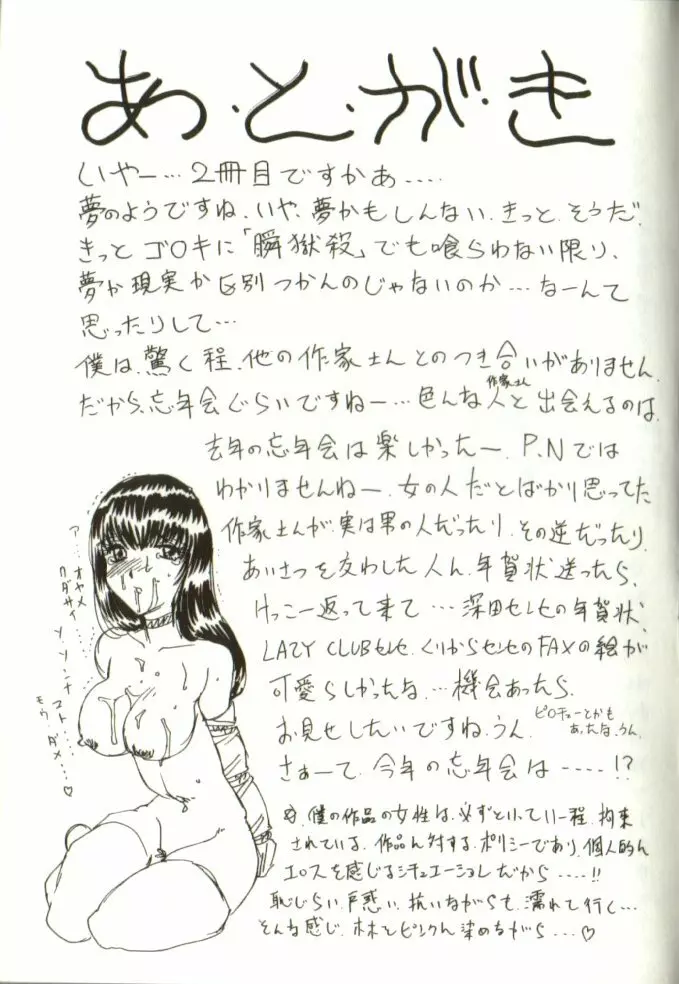 あ・と・がき
いやー…2冊目ですかあ….
夢のようですね、いや、夢かもしんない、きっと、そうだ、
きっと ゴウキに「瞬獄殺」でも喰らわない限り、
夢か現実か区別つかんのじゃないのか…なーんて
思ったりして…
僕は、驚く程、他の作家さんとのつき合いがありません、
だから、忘年会ぐらいですねー…色んな人と出会えるのは、
作家さん
去年の忘年会は楽しかったー、P.Nでは
わかりませんねー、女の人だとばかり思ってた
作家さんが、実は男の人だったり、その逆だったり、
あいさつを交わした人に、年賀状送ったら、
けっこー返って来て…深田センセの年賀状、
LAZY CLUBセンセ、くりからセンセのFAXの絵が
可愛らしかったな、…機会あったら、
お見せしたいですね、うん、
ピロチューとかも
あったな、うん、
さぁーて、今年の忘年会は----!?
僕の作品の女性は、必ずといっていい程、拘束
されている、作品に対する、ポリシーであり、個人的に
エロスを感じるシチュエーションだから……!!
恥じらい、戸惑い、抗いながらも、濡れて行く…
そんな感じ、ホホをピンクに染めながら…♡
ア…オヤメ
クダサイ…
ソ、ソンナ
コト……
モウ、ダメ…♡